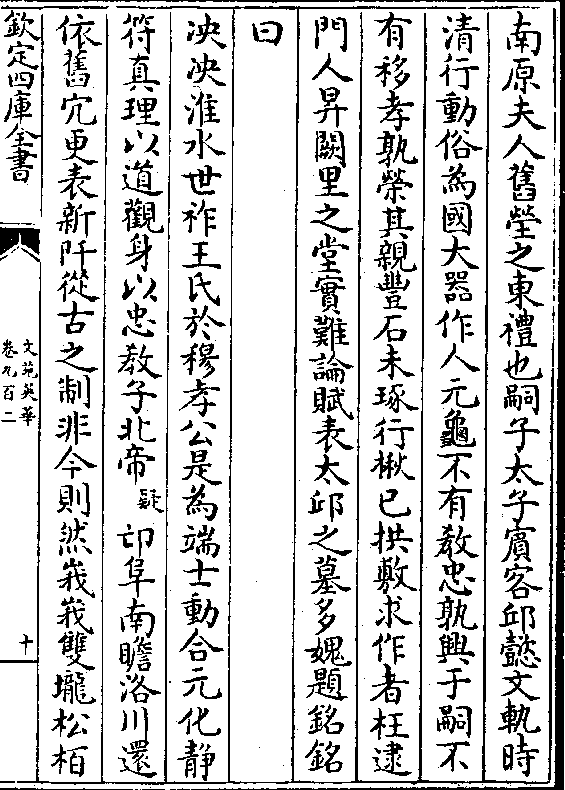 南原夫人舊塋之東禮也嗣子太子賓客邱懿文執時
清行動俗為國大器作人元龜不有教忠孰興于嗣不
有移孝孰榮其親豐石未琢行楸已拱敷求作者枉逮
門人昇闕里之堂實難論賦表太邱之墓多媿題銘銘
曰
泱泱淮水世祚王氏於穆孝公是為端士動合元化靜
符真理以道觀身以忠教子北帝疑邙阜南瞻洛川還
依舊穴更表新阡從古之制非今則然峩峩雙壠松栢
欽定四庫全書
文苑英華
卷九百二
十